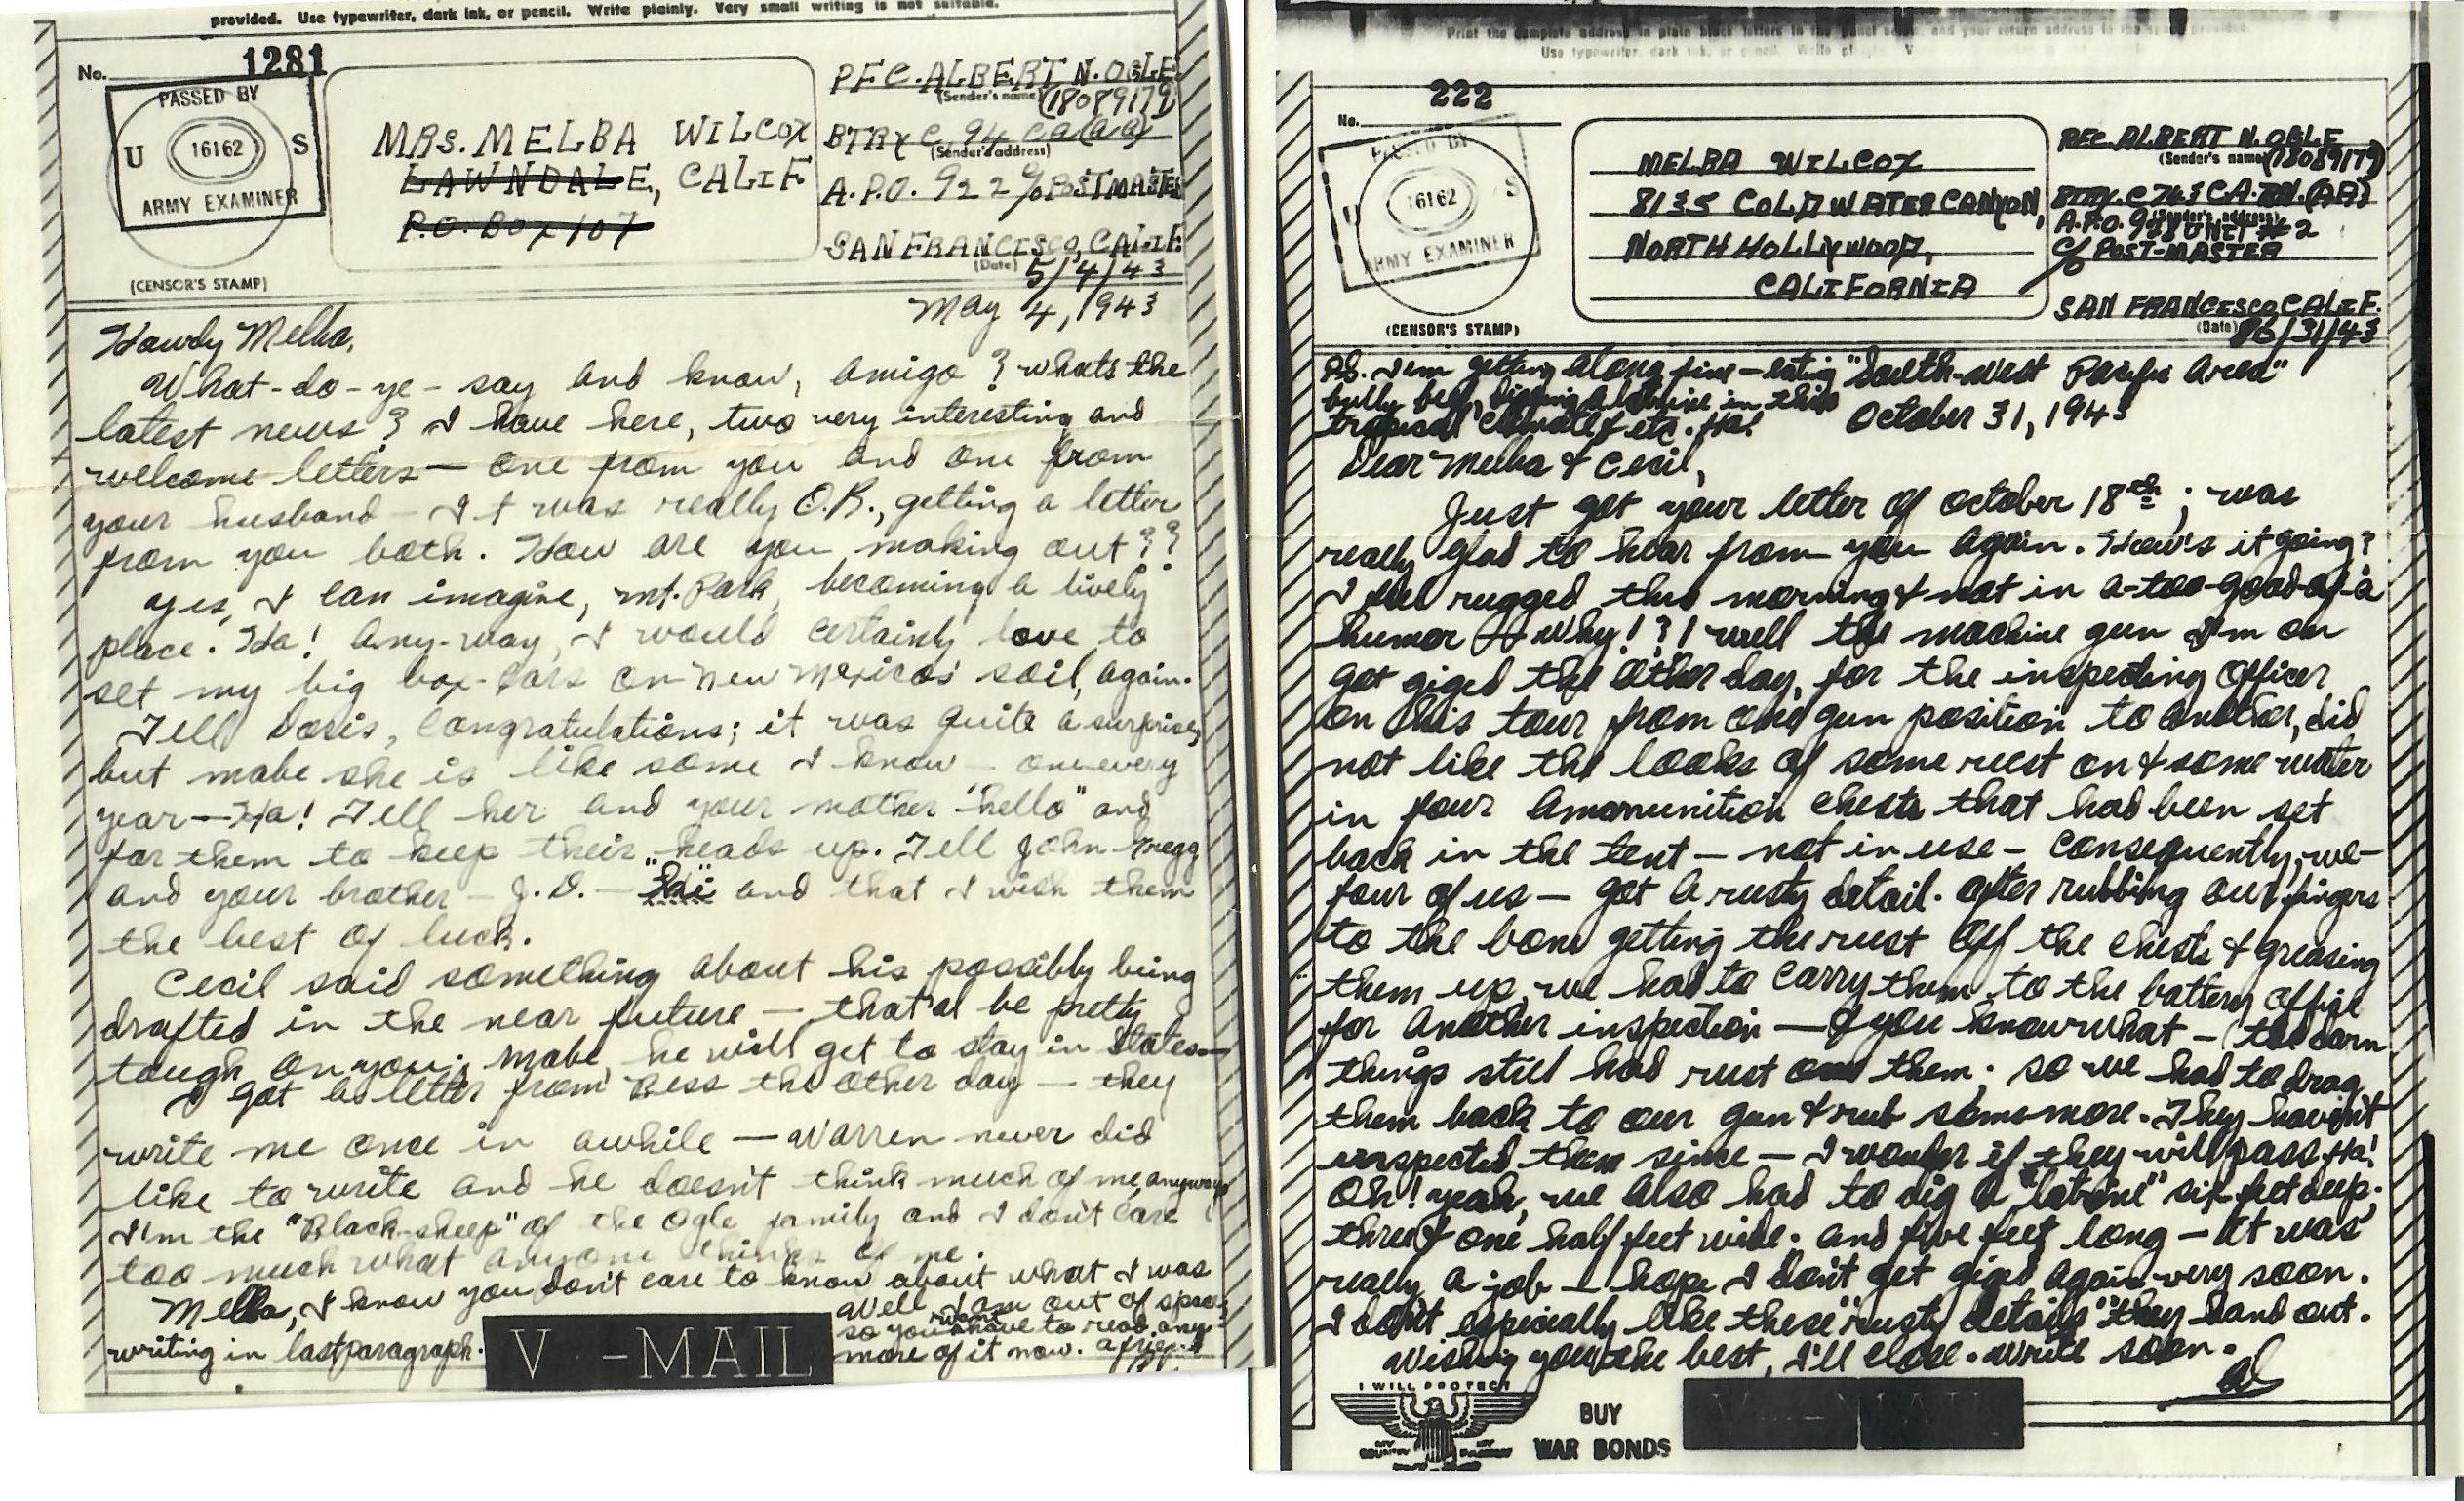 provided. Use typewriter, dark ink, or pencil. Write plainly. Very small writing is not suitable.
No. 1281
PASSED BY
U 16162 S
ARMY EXAMINER
(CENSOR'S STAMP)
MRS. MELBA WILCOX
LAWNDALE, CALIF
P.O. BOX 107
PFC. ALBERT N. OGLE
(Sender's name) (18089179)
BTRY C 94 CA (AA)
(Sender's address)
A.P.O. 922 c/o POSTMASTER
SAN FRANCISCO, CALIF.
(Date) 5/4/43
May 4, 1943
Howdy Melba,
What-do-ye-say and know, amigo? whats the
latest news? I have here, two very interesting and
welcome letters — one from you and one from
your husband — It was really O.K., getting a letter
from you both. How are you making out??
Yes, I can imagine, Mt. Park, becoming a lively
place. Ha! Any-way, I would certainly love to
set my big box-cars on New Mexicos' soil, again.
Tell Doris, Congratulations; it was quite a surprise,
but mabe she is like some I know — one every
year — Ha! Tell her and your mother "hello" and
for them to keep their heads up. Tell John Gregg
and your brother — J.D. — "hi" and that I wish them
the best of luck.
Cecil said something about his possibly being
drafted in the near future — that'al be pretty
tough on you; mabe, he will get to stay in States —
I got a letter from Bess the other day — they
write me once in awhile — Warren never did
like to write and he doesn't think much of me, anyway
I'm the "Black-sheep" of the Ogle family and I don't care
too much what anyone thinks of me.
Melba, I know you don't care to know about what I was
writing in last paragraph.
Well, I am out of space
so you wont have to read any-
more of it now. a friend
V - MAIL
Print the complete address in plain block letters in the panel below, and your return address in the space provided.
Use typewriter, dark ink, or pencil. Write
No. 222
PASSED BY
U 16162 S
ARMY EXAMINER
(CENSOR'S STAMP)
MELBA WILCOX
8135 COLDWATER CANYON,
NORTH HOLLYWOOD,
CALIFORNIA
PFC. ALBERT N. OGLE
(Sender's name) (18089179)
BTRY. C 743 C.A. BN. (AA)
(Sender's address)
A.P.O. 928 UNIT #2
c/o POST-MASTER
SAN FRANCISCO CALIF.
(Date) 10/31/43
P.S. I'm getting along fine — eating "South-West Pacific Area"
bully beef, digging a latrine in this
tropical climate & etc. Ha!
October 31, 1943
Dear Melba & Cecil,
Just got your letter of October 18th; was
really glad to hear from you again. How's it going?
I feel rugged this morning & not in a-too-good-of-a
humor — Why!?! Well the machine gun I'm on
got giged the other day, for the inspecting officer
on his tour from one gun position to another, did
not like the looks of some rust on & some water
in four ammunition chests that had been set
back in the tent — not in use — Consequently, we —
four of us — got a rusty detail. After rubbing our fingers
to the bone getting the rust off the chests & greasing
them up, we had to carry them to the battery office
for another inspection — & you know what — (the darn
things still had rust on them; so we had to drag
them back to our gun & rub some more. They haven't
inspected them since — I wonder if they will pass. Ha!
Oh! yeah, we also had to dig a "latrine" six feet deep;
three & one half feet wide; and five feet long — It was
really a job — I hope I don't get giged again very soon.
I don't especially like these "rusty details" they hand out.
Wishing you the best, I'll close. Write soon.
Al
I WILL PROTECT
MY COUNTRY
BUY
WAR BONDS
V - MAIL